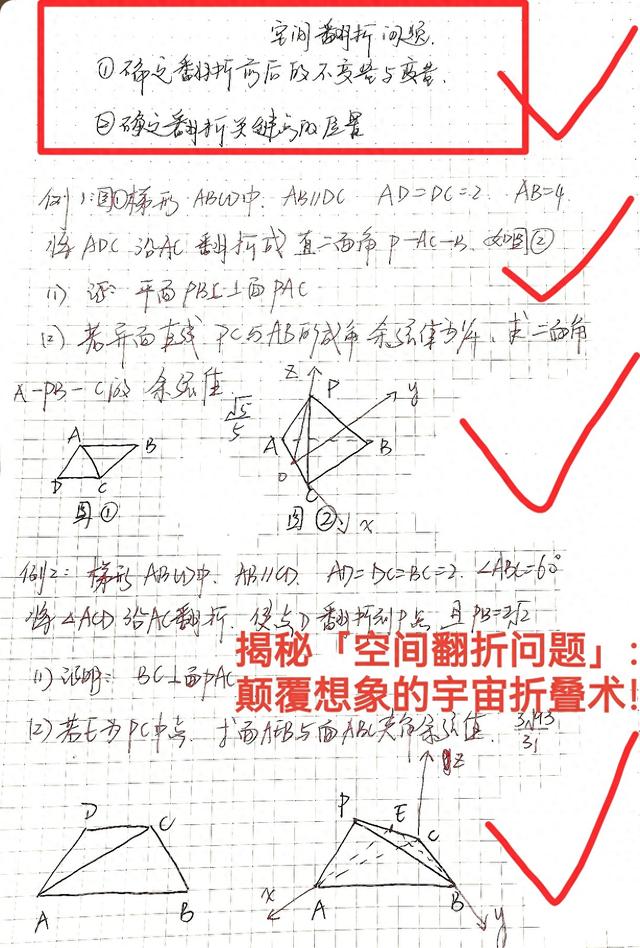 空间翻折问题.
①确定翻折前后的不变量与变量.
②确定翻折关键点的位置
例1:图①梯形 ABCD中. AB∥DC AD=DC=2. AB=4.
将 ADC 沿AC 翻折成直二面角 P-AC-B. 如图②
(1) 证: 平面PBC⊥面PAC
(2) 若异面直线 PC与AB所成角 余弦值为 . 求二面角
A-PB-C的 余弦值
√5/5
A B D C
图①
z P y A B O C x
图②
例2: 梯形 ABCD中. AB∥CD. AD=DC=BC=2. ∠ABC=60°
将 △ACD 沿AC翻折. 使点D 翻折到P点. 且 PB=2√2
揭秘「空间翻折问题」:
(1) 证明: BC⊥面PAC
颠覆想象的宇宙折叠术!
(2) 若E为PC中点. 求面AEB与面ABC夹角余弦值. 3√93/31
D C A B
z P E C x A B y